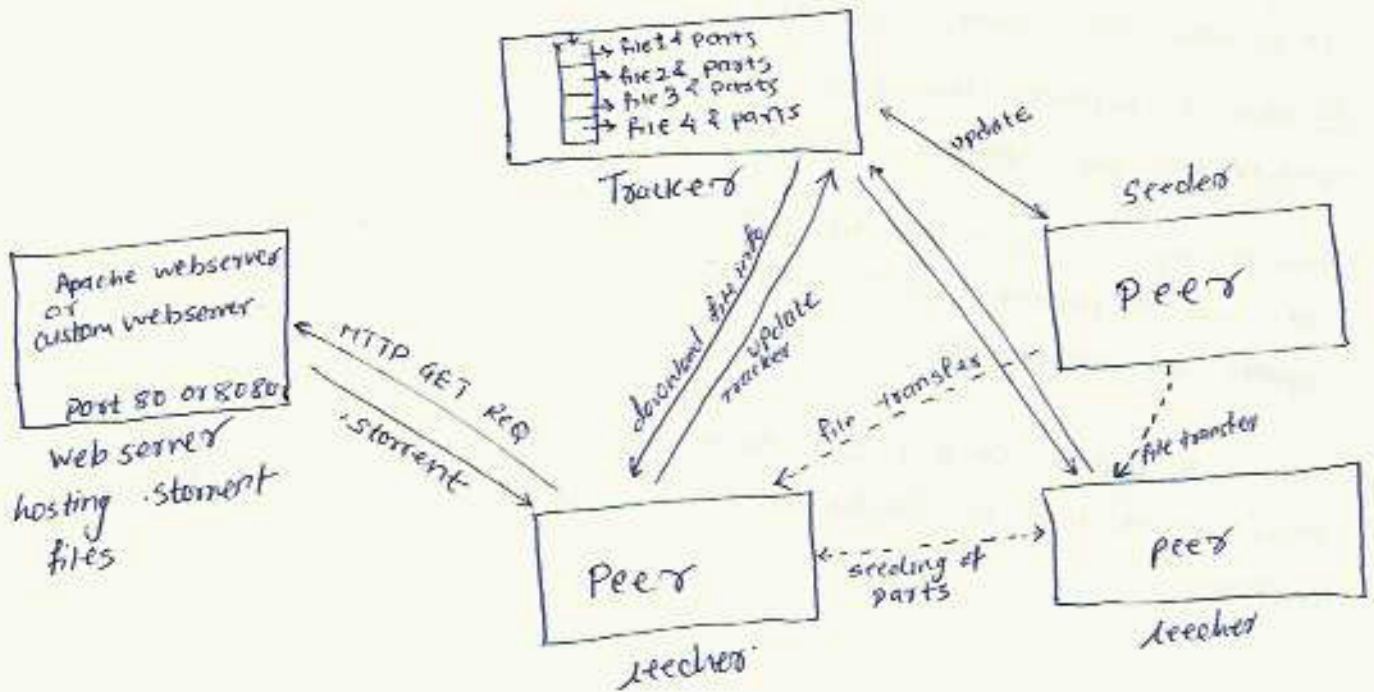 → file 1 & parts
→ file 2 & parts
→ file 3 & parts
→ file 4 & parts
Tracker
update
seeder
Peer
Apache webserver
or
custom webserver
Port 80 or 8080
web server
hosting .storrent
files
HTTP GET REQ
.storrent
download file info
update
tracker
file transfer
file transfer
Peer
leecher
seeding of
parts
peer
leecher